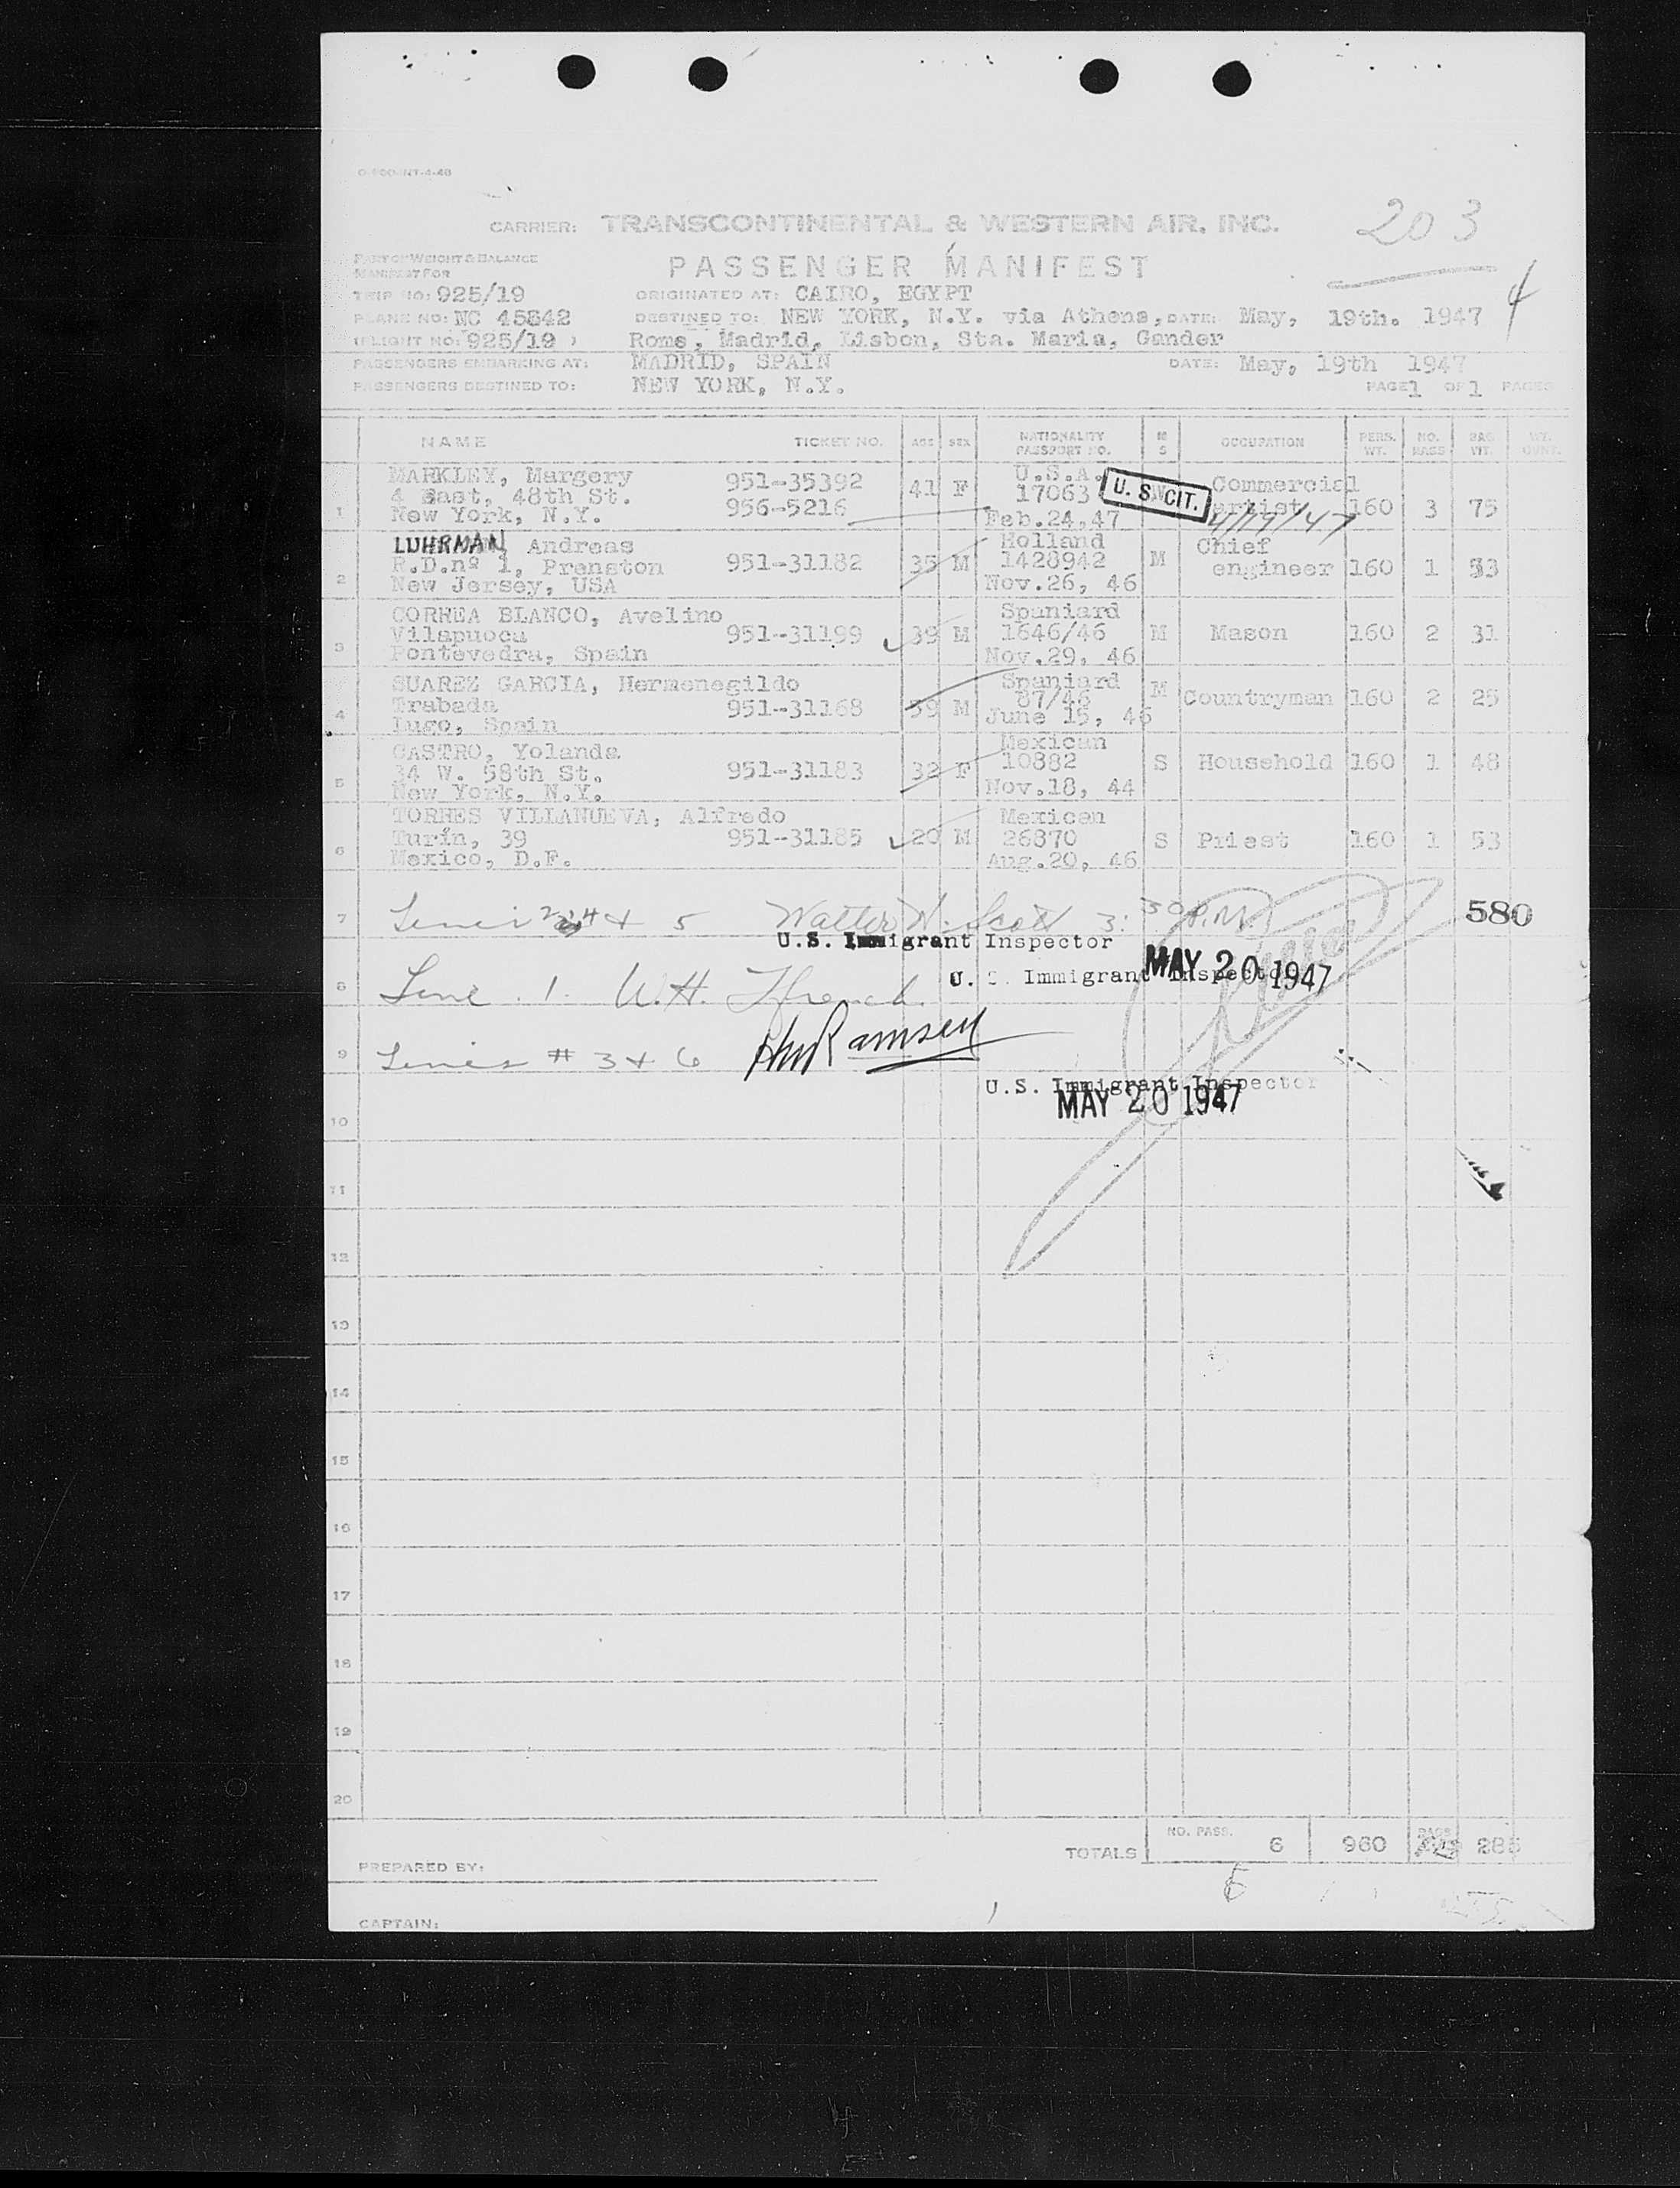 CARRIER: TRANSCONTINENTAL & WESTERN AIR, INC.
203
PART OF WEIGHT & BALANCE
MANIFEST FOR
PASSENGER MANIFEST
4
TRIP NO: 925/19 ORIGINATED AT: CAIRO, EGYPT
PLANE NO: NC 45542 DESTINED TO: NEW YORK, N.Y. via Athens, DATE: May, 19th. 1947
(FLIGHT NO: 925/19 ) Rome, Madrid, Lisbon, Sta. Maria, Gander
PASSENGERS EMBARKING AT: MADRID, SPAIN DATE: May, 19th 1947
PASSENGERS DESTINED TO: NEW YORK, N.Y. PAGE 1 OF 1 PAGES
NAME TICKET NO. AGE SEX NATIONALITY PASSPORT NO. M S OCCUPATION PERS. WT. NO. BAGS BAG WT.
MARKLEY, Margery 951-35392 U.S.A. Commercial
4 East, 48th St. 41 F 17063 U. S. CIT. artist
1 New York, N.Y. 956-5216 Feb.24,47 160 3 75
LUHRMAN, Andreas Holland Chief
R.D.nº 1, Prenston 951-31182 35 M 1428942 M engineer 160 1 53
2 New Jersey, USA Nov.26, 46
CORREA BLANCO, Avelino Spaniard
Vilapuoca 951-31199 39 M 1646/46 M Mason 160 2 31
3 Pontevedra, Spain Nov.29, 46
SUAREZ GARCIA, Hermenegildo Spaniard
Trabada 951-31168 39 M 87/46 M Countryman 160 2 25
4 Lugo, Spain June 15, 46
CASTRO, Yolanda Mexican
34 W. 58th St. 951-31183 32 F 10882 S Household 160 1 48
5 New York, N.Y. Nov.18, 44
TORRES VILLANUEVA, Alfredo Mexican
Turín, 39 951-31185 20 M 26870 S Priest 160 1 53
6 Mexico, D.F. Aug.20, 46
7 Lines 2, 4 & 5 Walter W. Scott 3:30 P.M. 580
U.S. Immigrant Inspector
8 Line 1. W.H. Ffrench. U. S. Immigrant Inspector MAY 20 1947
9 Lines # 3 & 6 Ramsey
U.S. Immigrant Inspector
MAY 20 1947
10
11
12
13
14
15
16
17
18
19
20
TOTALS NO. PASS. 6 960 BAGS 285
PREPARED BY:
6
CAPTAIN: